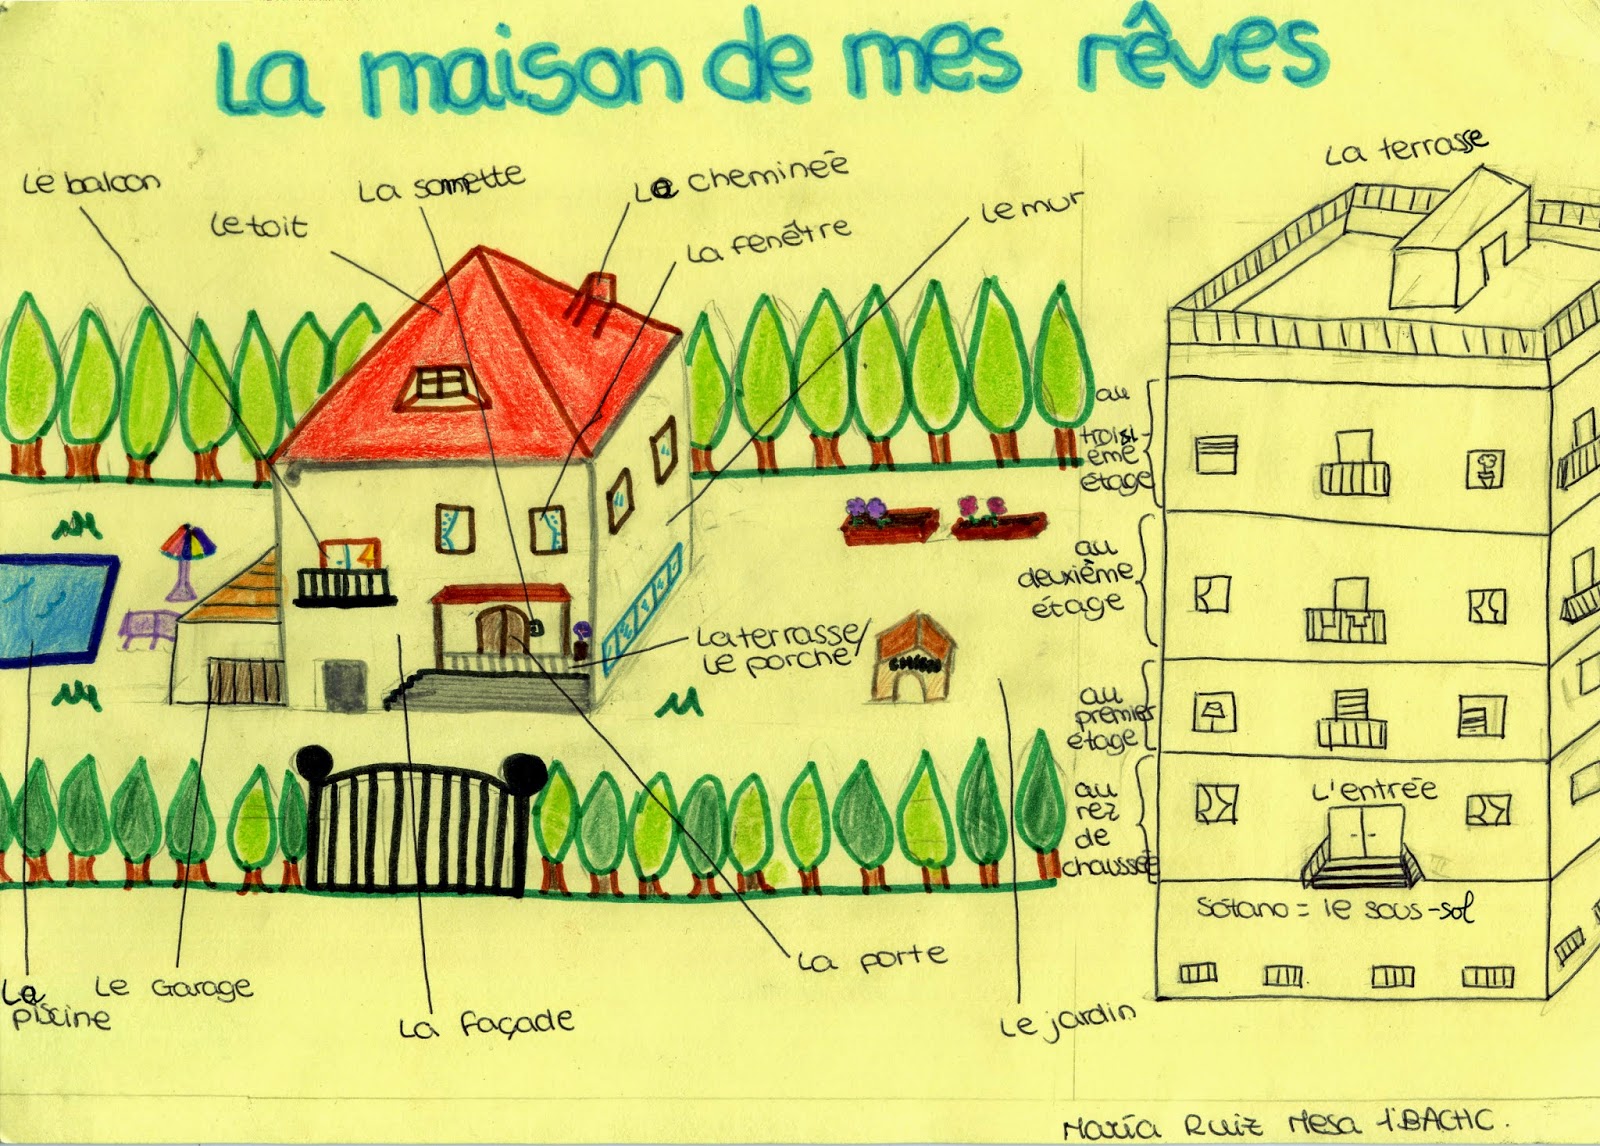 La maison de mes rêves
Le balcon
La sonnette
Le toit
La chemineé
La fenêtre
Le mur
La terrasse
au
troisi-
éme
étage
au
deuxième
étage
au
premier
étage
au
rez
de
chaussée
L'entrée
Sótano = le sous-sol
La terrasse/
Le porche
La
piscine
Le Garage
La façade
La porte
Le jardin
María Ruiz Mesa 1ºBACHC.